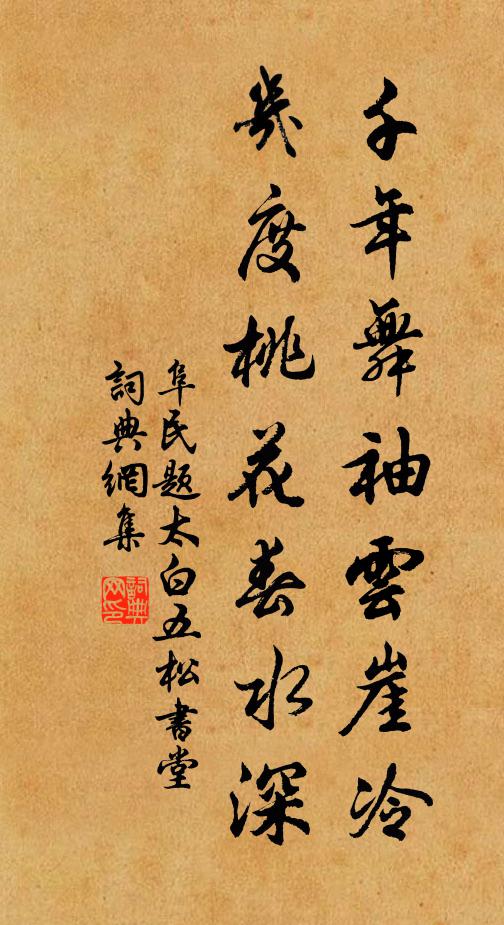 千年舞袖雲崖冷
幾度桃花春水深
阜民題太白五松書堂
詞典網集
詞典网印